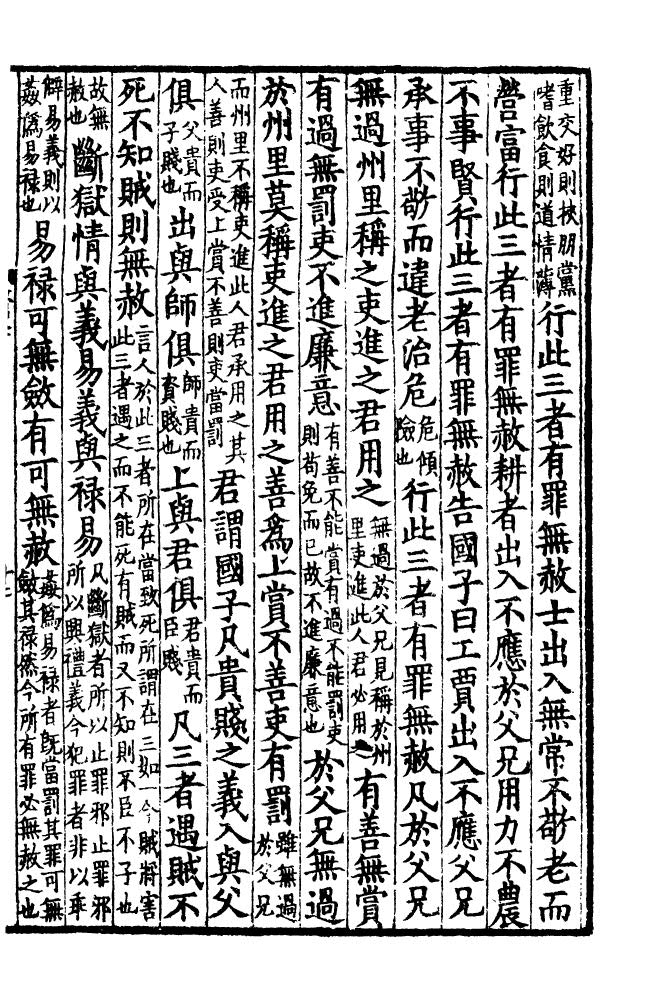 重交好則挾朋黨
嗜飲食則道情薄
行此三者有罪無赦士出入無常不敬老而
營富行此三者有罪無赦耕者出入不應於父兄用力不農
不事賢行此三者有罪無赦告國子曰工賈出入不應父兄
承事不敬而違老治危
危傾
險也
行此三者有罪無赦凡於父兄
無過州里稱之吏進之君用之
無過於父兄見稱於州
里吏進此人君必用之
有善無賞
有過無罰吏不進廉意
有善不能賞有過不能罰吏
則苟免而已故不進廉意也
於父兄無過
於州里莫稱吏進之君用之善爲上賞不善吏有罰
雖無過
於父兄
而州里不稱吏進此人君承用之其
人善則吏受上賞不善則吏當罰
君謂國子凡貴賤之義入與父
俱
父貴而
子賤也
出與師俱
師貴而
資賤也
上與君俱
君貴而
臣賤
凡三者遇賊不
死不知賊則無赦
言人於此三者所在當致死所謂在三如一今賊將害
此三者遇之而不能死有賊而又不知則不臣不子也
故無
赦也
斷獄情與義易義與祿易
凡斷獄者所以止罪邪止罪邪
所以興禮義今犯罪者非以乖
辟易義則以
姦爲易祿也
易祿可無斂有可無赦
姦爲易祿者旣當罰其罪可無
斂其祿然今所有罪必無赦之也